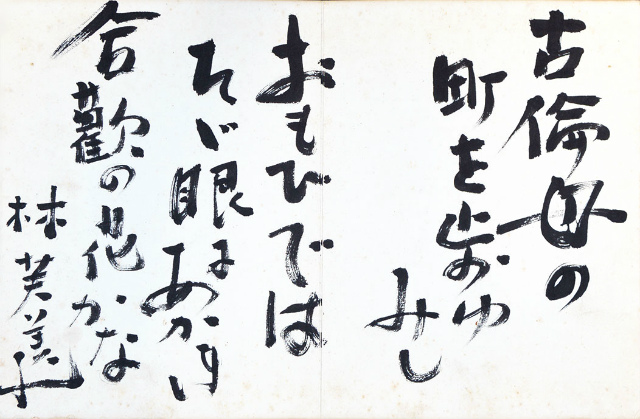 古倫母の
町を歩ゆ
みし
おもひでは
たゞ眼に
あかき
合歡の花かな
林芙美子